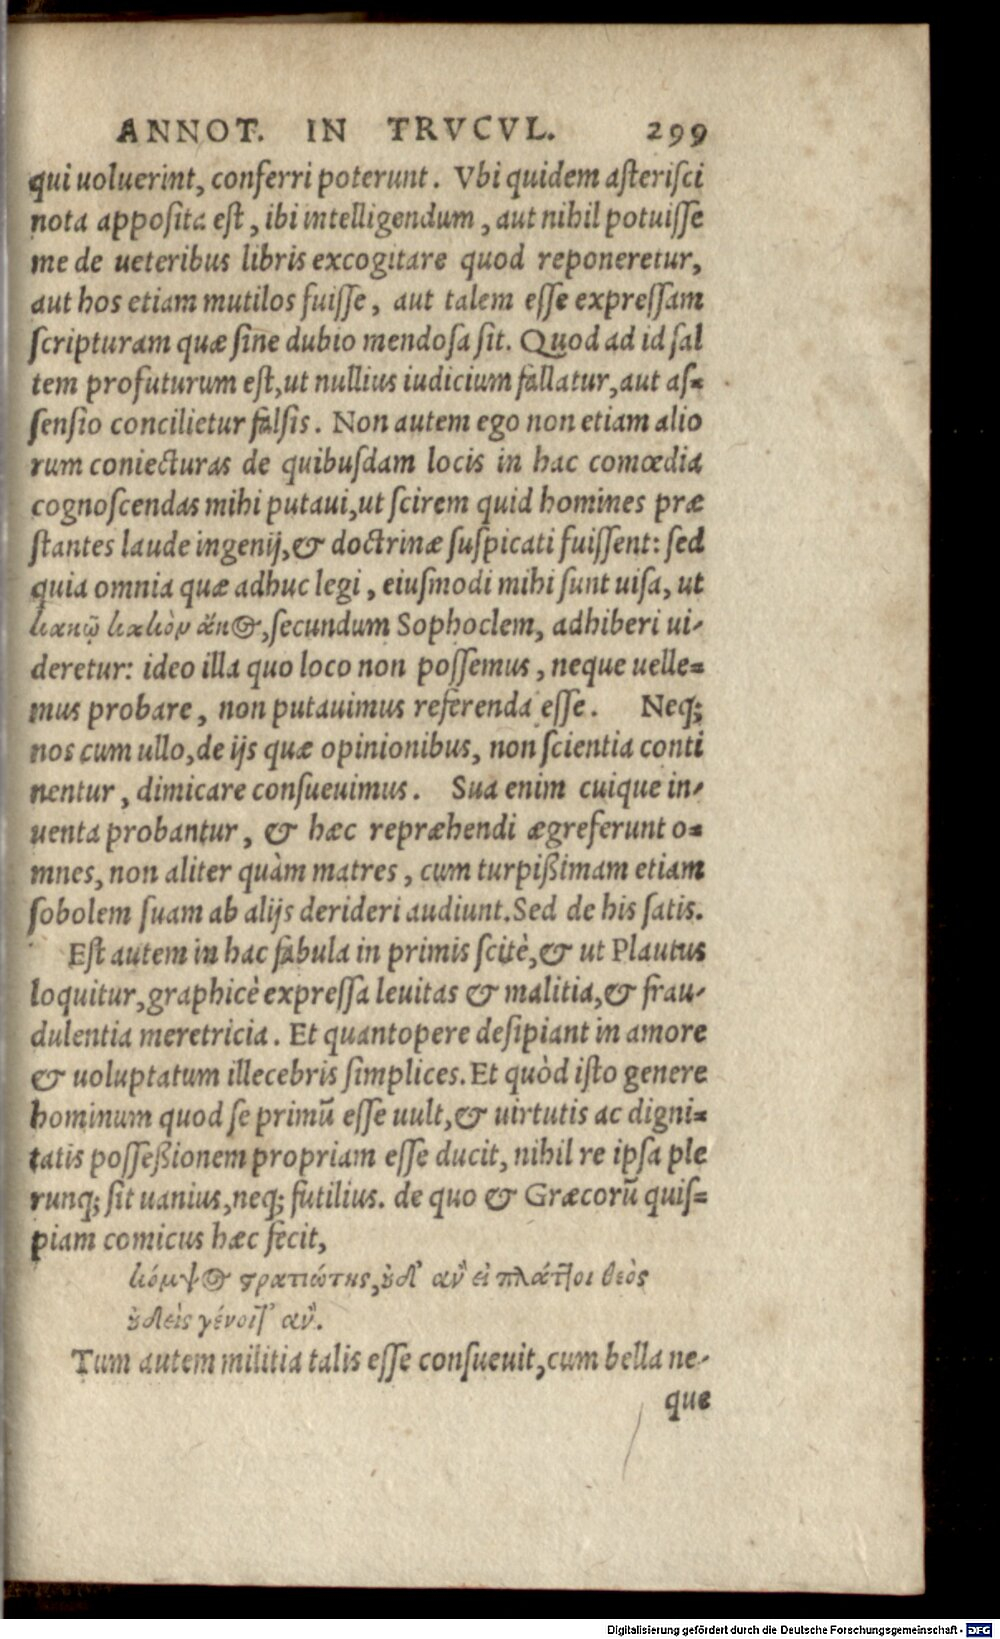 ANNOT. IN TRVCVL. 299
qui uoluerint, conferri poterunt. Vbi quidem asterisci
nota apposita est, ibi intelligendum, aut nihil potuisse
me de ueteribus libris excogitare quod reponeretur,
aut hos etiam mutilos fuisse, aut talem esse expressam
scripturam quæ sine dubio mendosa sit. Quod ad id sal
tem profuturum est, ut nullius iudicium fallatur, aut as-
sensio concilietur falsis. Non autem ego non etiam alio
rum coniecturas de quibusdam locis in hac comœdia
cognoscendas mihi putaui, ut scirem quid homines præ
stantes laude ingenij, & doctrinæ suspicati fuissent: sed
quia omnia quæ adhuc legi, eiusmodi mihi sunt uisa, ut
κακῷ κακὸν ἄκος, secundum Sophoclem, adhiberi ui-
deretur: ideo illa quo loco non possemus, neque uelle-
mus probare, non putauimus referenda esse. Neq;
nos cum ullo, de ijs quæ opinionibus, non scientia conti
nentur, dimicare consueuimus. Sua enim cuique in-
uenta probantur, & hæc repræhendi ægreferunt o-
mnes, non aliter quàm matres, cum turpißimam etiam
sobolem suam ab alijs derideri audiunt. Sed de his satis.
Est autem in hac fabula in primis scitè, & ut Plautus
loquitur, graphicè expressa leuitas & malitia, & frau-
dulentia meretricia. Et quantopere desipiant in amore
& uoluptatum illecebris simplices. Et quòd isto genere
hominum quod se primū esse uult, & uirtutis ac digni-
tatis posseßionem propriam esse ducit, nihil re ipsa ple
runq; sit uanius, neq; futilius. de quo & Græcorū quis-
piam comicus hæc fecit,
κόμψος στρατιώτης, ȣ̓δ' ἂν εἰ πλάττοι θεὸς
ȣ̓δεὶς γένοιτ' ἄν.
Tum autem militia talis esse consueuit, cum bella ne-
que
Digitalisierung gefördert durch die Deutsche Forschungsgemeinschaft - DFG